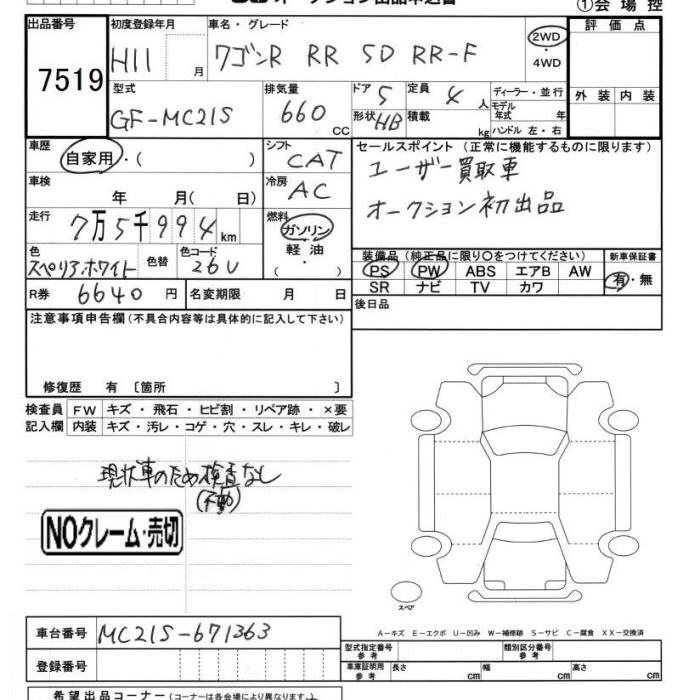 ①会場控
出品番号
7519
初度登録年月
H11 月
車名・グレード
ワゴンR RR 5D RR-F
2WD
・4WD
評価点
外装 内装
型式
GF-MC21S
排気量
660 cc
ドア 5
定員 4 人
形状 HB
積載 kg
ディーラー・並行
モデル年式 年
ハンドル 左・右
車歴
自家用・( )
シフト
CAT
セールスポイント (正常に機能するものに限ります)
ユーザー買取車
オークション初出品
車検
年 月( 日)
冷房
AC
走行
7万5千994km
燃料
ガソリン
軽・油
( )
色
スペリアホワイト
色替
色コード
26U
装備品 (純正品に限り〇をつけてください)
PS PW ABS エアB AW
SR ナビ TV カワ
新車保証書
有・無
R券 6640円
名変期限 月 日
後日品
注意事項申告欄(不具合内容等は具体的に記入して下さい)
修復歴 有 〔箇所 〕
検査員 FW キズ・飛石・ヒビ割・リペア跡・×要
記入欄 内装 キズ・汚レ・コゲ・穴・スレ・キレ・破レ
現状車のため検査なし
(不動)
NOクレーム・売切
スペア
A-キズ E-エクボ U-凹み W-補修跡 S-サビ C-腐食 XX-交換済
車台番号 MC21S-671363
登録番号
型式指定番号参考
類別区分番号参考
車庫証明用参考 長さ cm 幅 cm 高さ cm
希望出品コーナー(コーナーは各会場により異なります。)